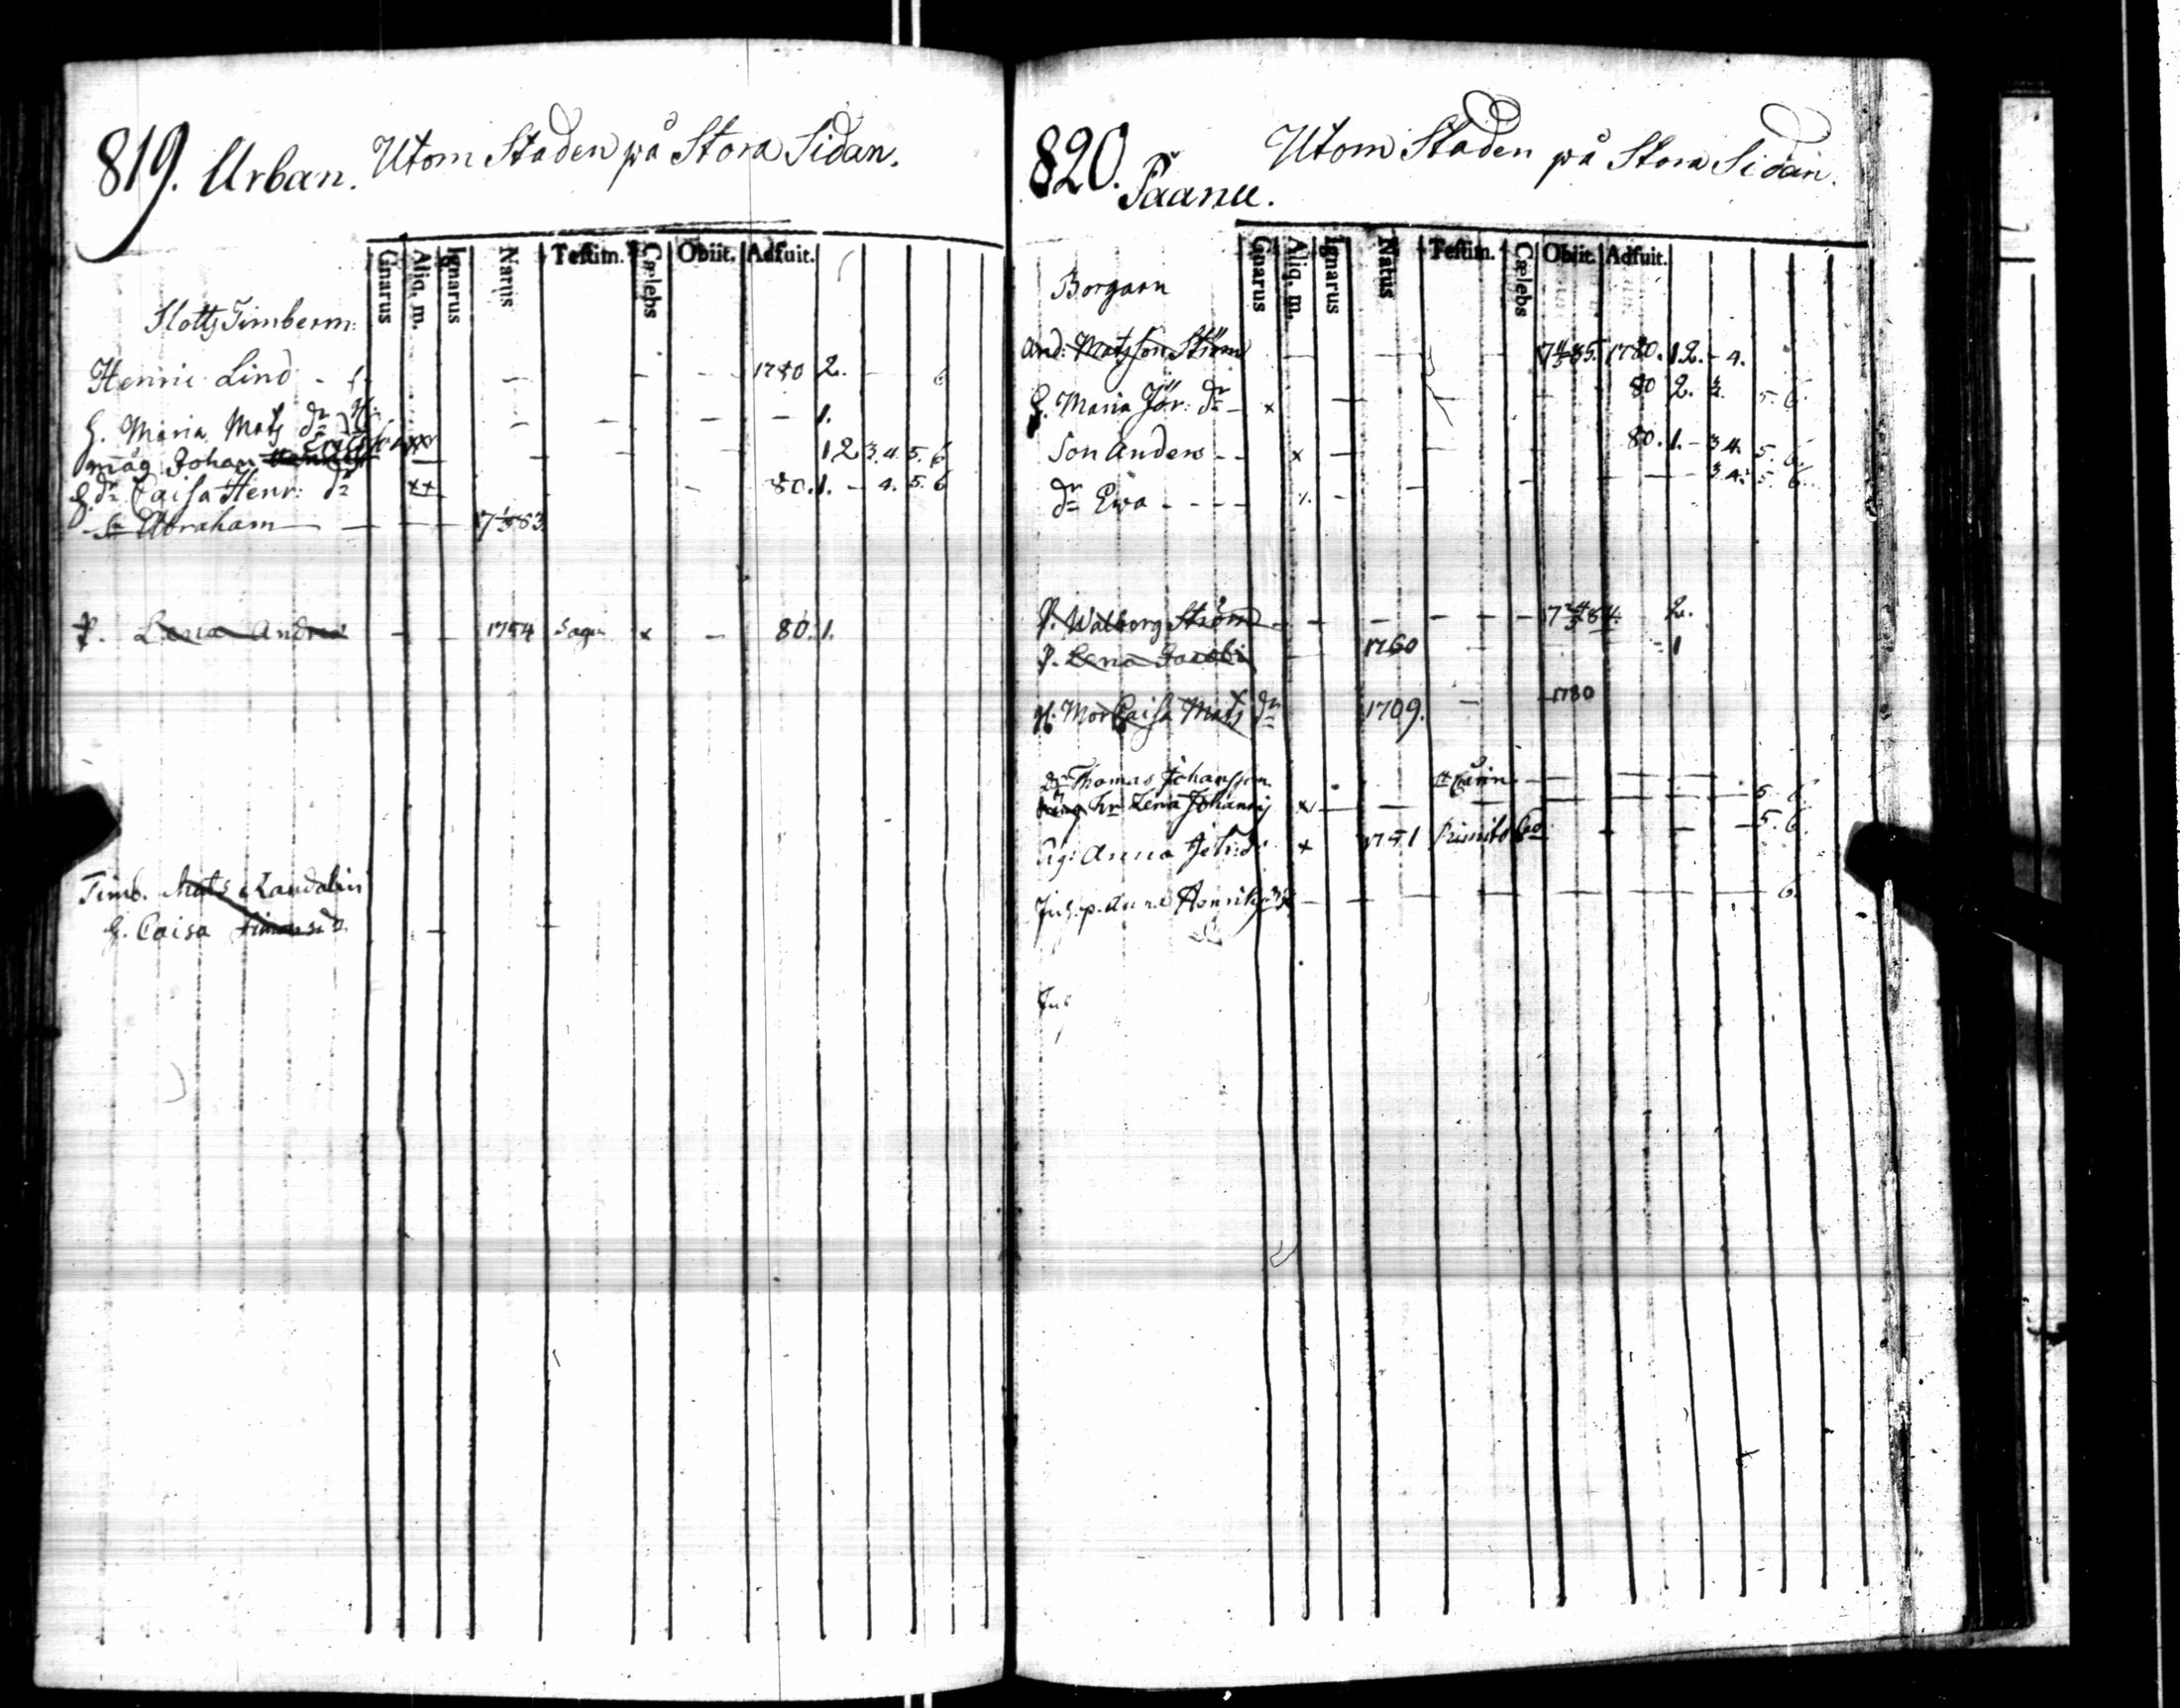 819. Urban. Utom Staden på Stora Sidan.
Gnarus Aliq. m. Ignarus Natus Testim. Cælebs Obiit. Adfuit.
Slotts Timberm:
Henric Lind 1780 2. 6
H. Maria Mats dr 1.
måg Johan Ericsson xx 1 2 3. 4. 5. 6
H. dr Caisa Henr: dr xx 80. 1. - 4. 5. 6
Sn Abraham 17 1/5 83
P. Lena Andrea 1754 Sagu x 80. 1.
Timb. Mats Randalin
H. Caisa Simonsd
820. Utom Staden på Stora Sidan.
Paanu.
Gnarus Aliq. m. Ignarus Natus Testim. Cælebs Obiit. Adfuit.
Borgarn
And: Matsson Ström 17 4/3 85. 1780. 1. 2. - 4.
H. Maria Jör: dr x 80 2. 5. 6.
Son Anders x 80. 1. - 3 4. 5. 6.
dr Ewa 3 4. 5 6.
P. Walborg Ström 2.
P. Lena Jacobi 1760 1
H. Mor Caisa Mats dr 1709. 1780
Thomas Johansson St Carin
hr Lena Johannis x 5. 6.
Anna x 1751 5. 6.
Henrik 6.